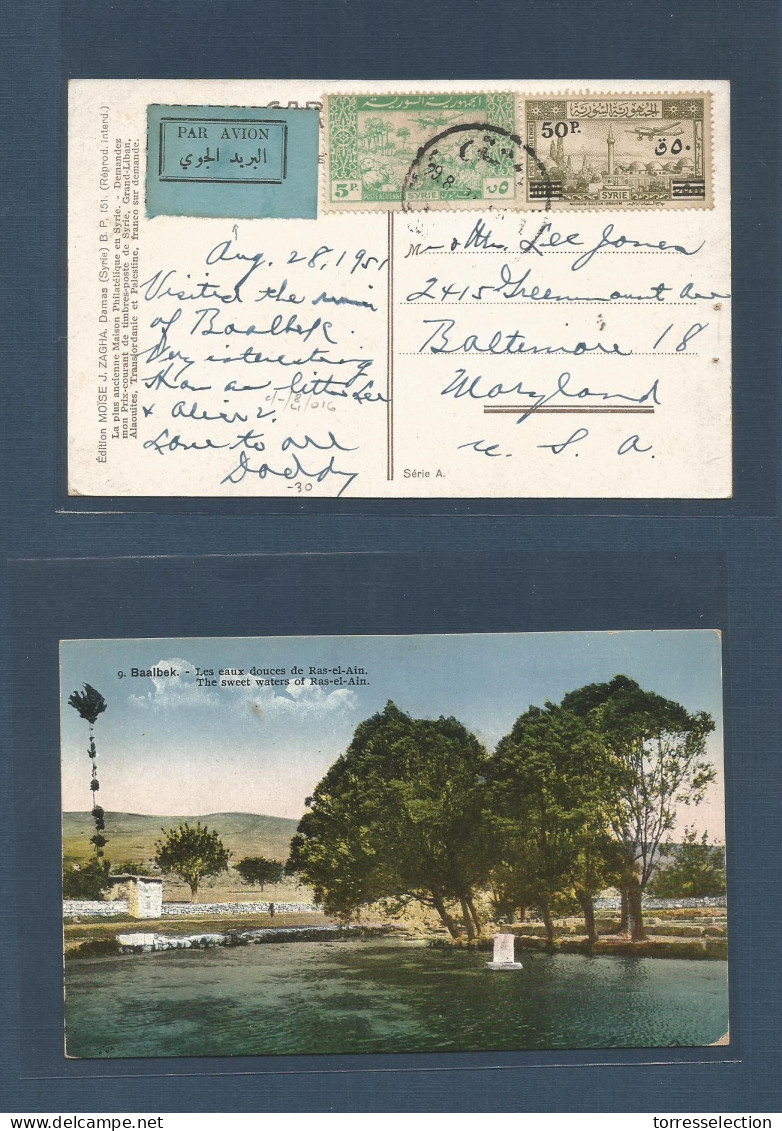 Édition MOÏSE J. ZAGHA, Damas (Syrie) B. P. 151. (Réprod. interd.)
La plus ancienne Maison Philatélique en Syrie. - Demandez
mon Prix-courant de timbres-poste de Syrie, Grand-Liban,
Alaouites, Transjordanie et Palestine, franco sur demande.
PAR AVION
البريد الجوي
الجمهورية السورية
5 P.
POSTE AERIENNE
SYRIE
٥ ق
الجمهورية السورية
50 P.
٥٠ ق
SYRIE
Aug. 28, 1951
Visited the ruin
of Baalbek.
Very interesting
How are little Lee
&
Love to all
Daddy
-30
Mr & Mrs. Lee Jones
2415 Greenmount Ave
Baltimore 18
Maryland
U. S. A.
Série A.
9. Baalbek. - Les eaux douces de Ras-el-Ain.
The sweet waters of Ras-el-Ain.
torresselection